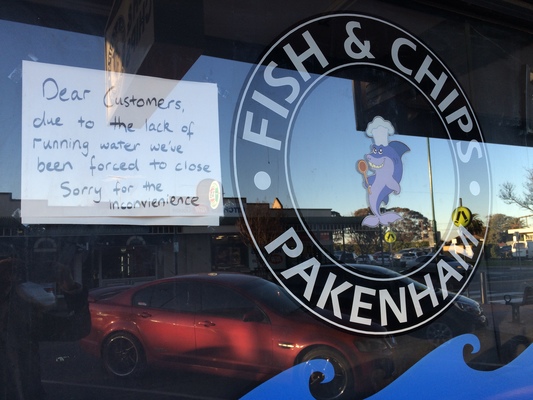 Dear Customers,
due to the lack of
running water we've
been forced to close
Sorry for the
inconvienience
FISH & CHIPS
PAKENHAM